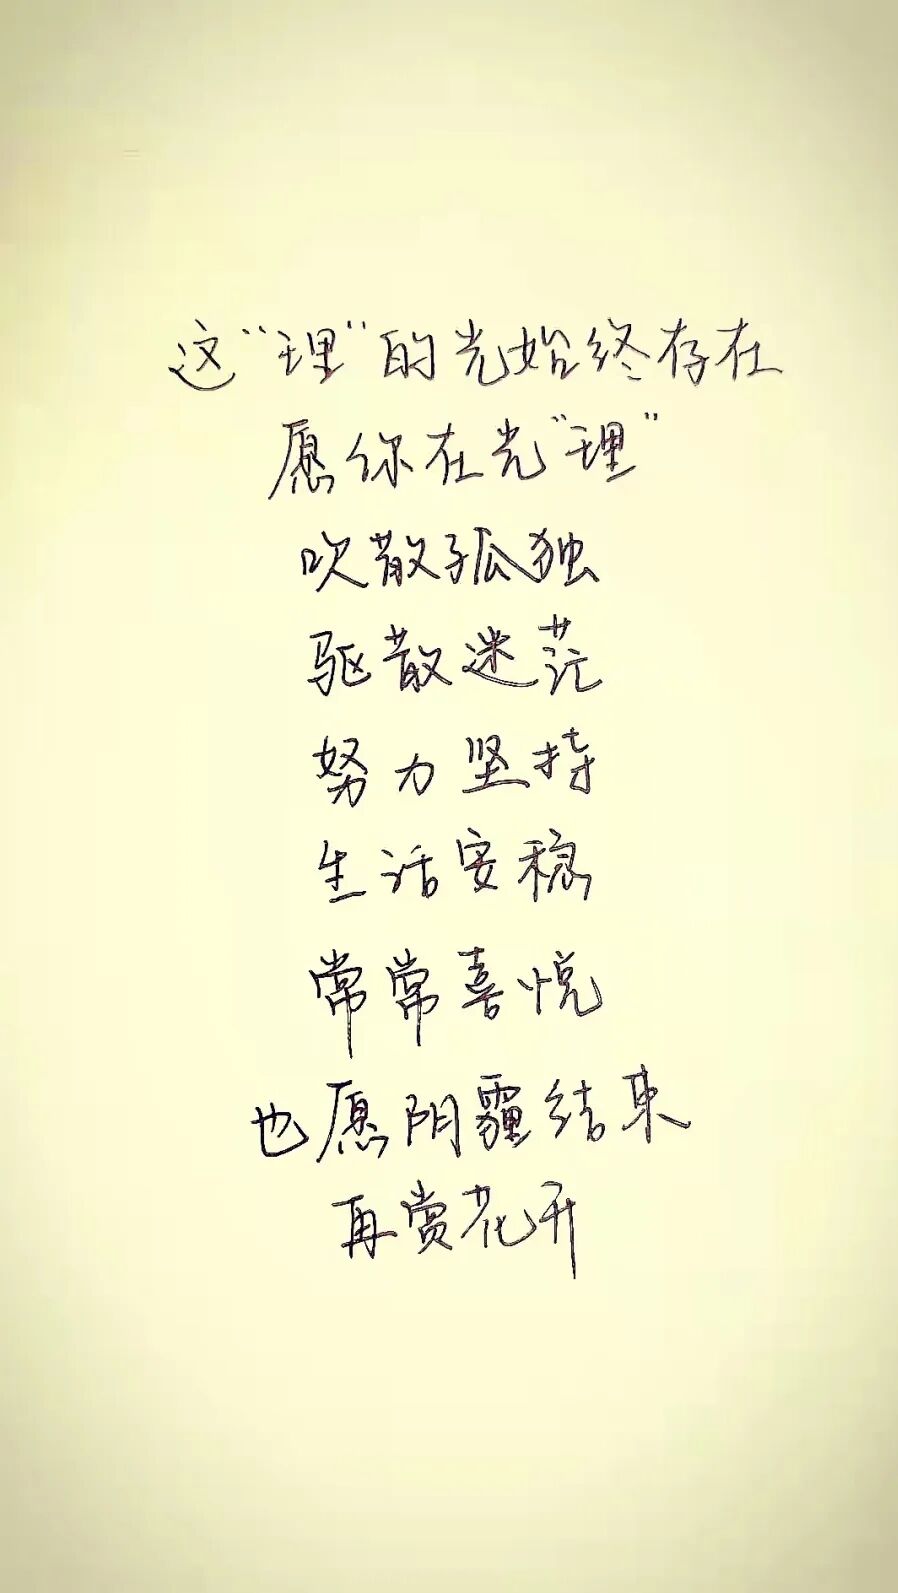 这“理”的光始终存在
愿你在光“理”
吹散孤独
驱散迷茫
努力坚持
生活安稳
常常喜悦
也愿阴霾结束
再赏花开